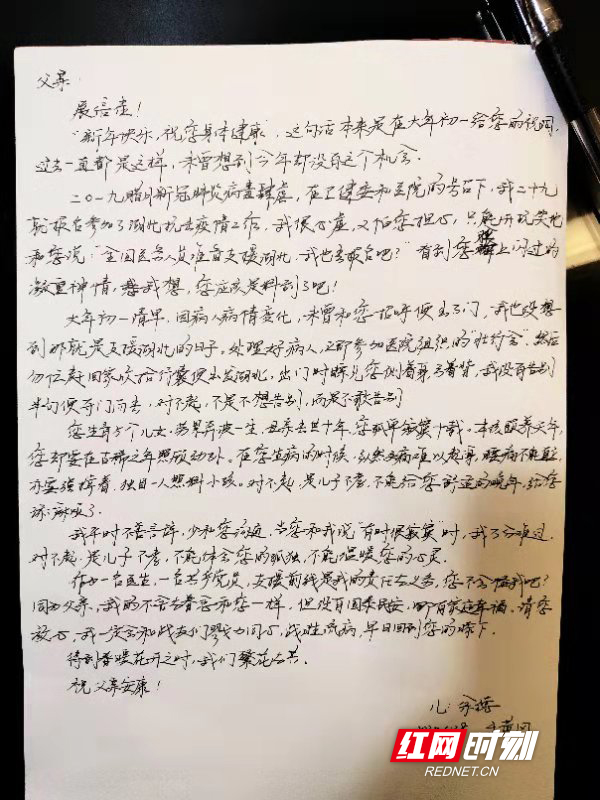 父亲:
展信佳!
"新年快乐,祝您身体健康",这句话本来是在大年初一给您的祝词,
过去一直都是这样,未曾想到今年却没有这个机会.
二〇一九腊月新冠肺炎病毒肆虐,在卫健委和医院的号召下,我二十九
就报名参加了湖北抗击疫情工作,我很心虚,又怕您担心,只能开玩笑地
和您说:"全国医务人员准备支援湖北,我也去报名吧?"看到您脸上闪过的
凝重神情,我想,您应该是料到了吧!
大年初一清早,因病人病情变化,未曾和您招呼便出了门,我也没想
到那就是支援湖北的日子,处理好病人,立即参加医院组织的"壮行会",然后
匆忙赶回家收拾行囊便出发湖北,出门时瞥见您侧着身弓着背,我没有告别
半句便夺门而去,对不起,不是不想告别,而是不敢告别
您生育5个儿女,劳累奔波一生,
您却要在古稀之年照顾幼孙.在您生病的时候,
亦要强撑着,独自一人照料小孩.对不起,是儿子不孝,不能给您舒适的晚年,给您
添麻烦了.
我平时不善言辞,少和您沟通,当您和我说"有时很寂寞"时,我十分难过.
对不起,是儿子不孝,不能体会您的孤独,不能温暖您的心灵.
作为一名医生,一名共产党员,支援前线是我的责任与义务,您不会怪我吧?
同为父亲,我的不舍与眷恋和您一样,但没有国泰民安,哪有家庭幸福.请您
放心,我一定会和战友们勠力同心,战胜流病,早日回到您的膝下.
待到春暖花开之时,我们繁花与共.
祝父亲安康!
儿:
红网时刻
REDNET.CN